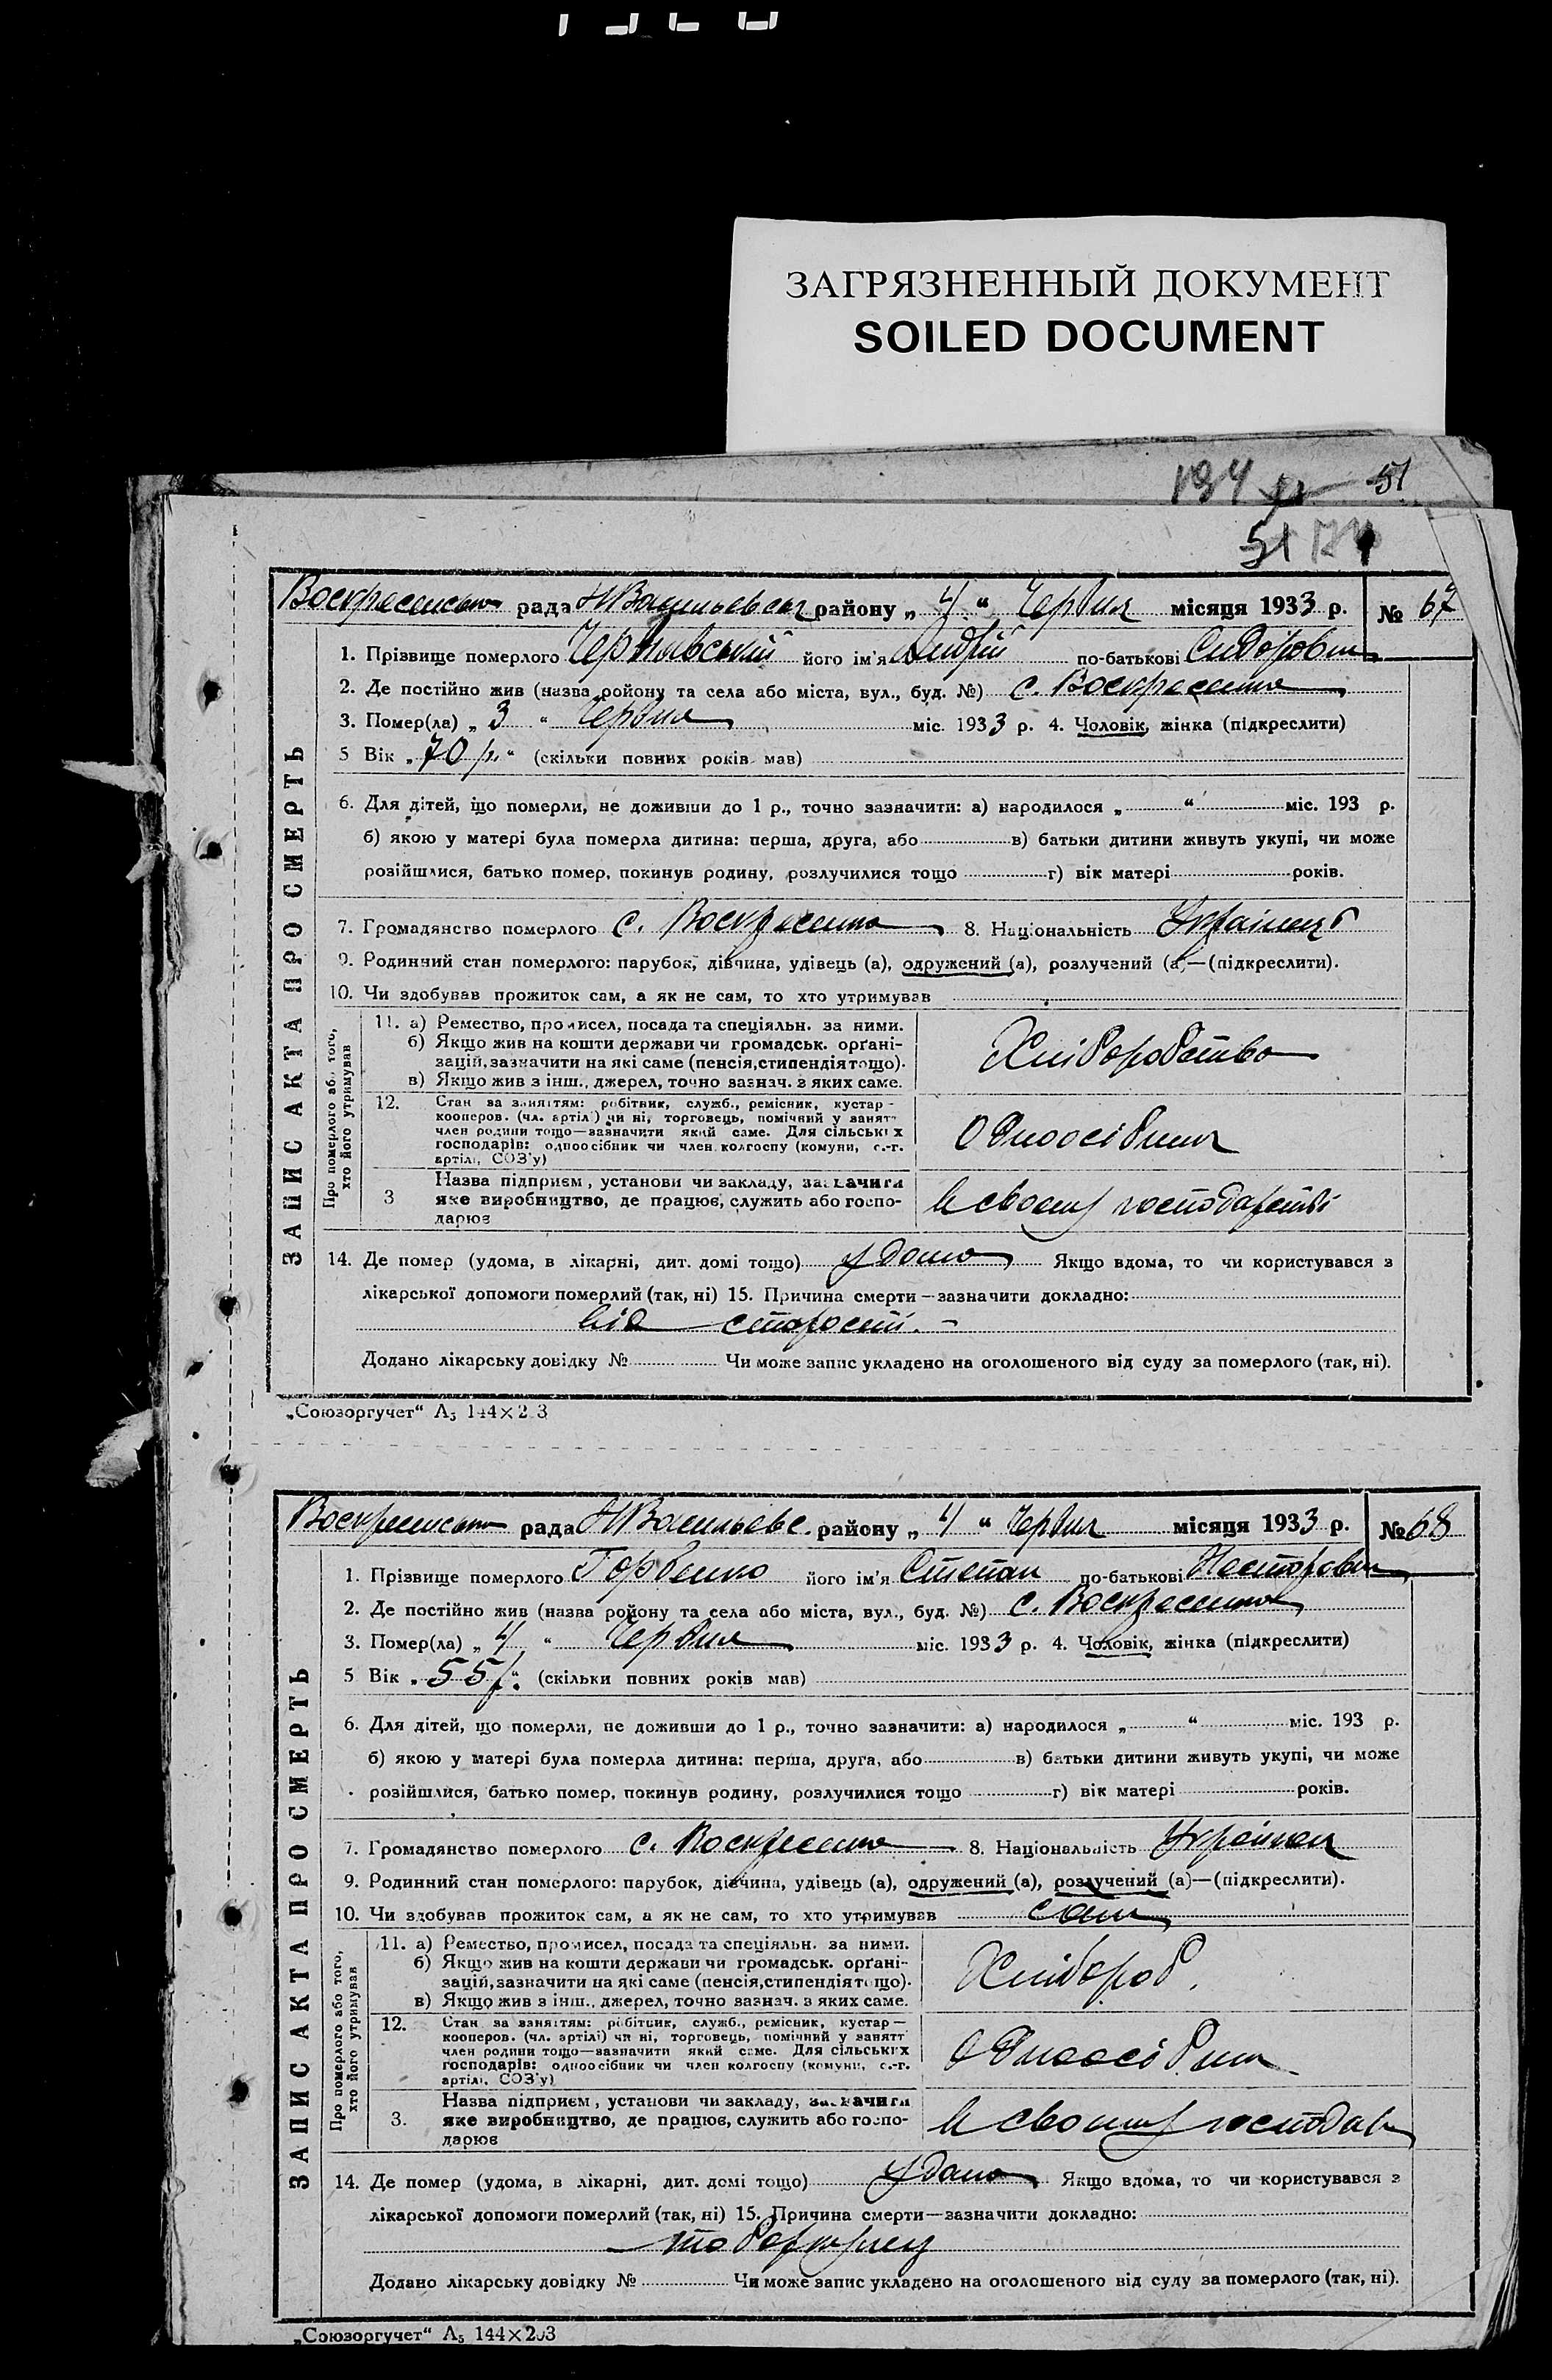 ЗАГРЯЗНЕННЫЙ ДОКУМЕНТ
SOILED DOCUMENT
194 51
51
рада НВасильевськ району „ 4 “ Червня місяця 1933 р. № 67
ЗАПИС АКТА ПРО СМЕРТЬ
1. Прізвище померлого Чернявський його ім'я Андрій по-батькові Сидорович
2. Де постійно жив (назва району та села або міста, вул., буд. №) с. Воскресенка
3. Помер(ла) „ 3 “ Червня міс. 1933 р. 4. Чоловік, жінка (підкреслити)
5 Вік „ 70 р. “ (скільки повних років мав)
6. Для дітей, що померли, не доживши до 1 р., точно зазначити: а) народилося „ “ міс. 193 р.
б) якою у матері була померла дитина: перша, друга, або в) батьки дитини живуть укупі, чи може
розійшлися, батько помер, покинув родину, розлучилися тощо г) вік матері років.
7. Громадянство померлого с. Воскресенка 8. Національність
9. Родинний стан померлого: парубок, дівчина, удівець (а), одружений (а), розлучений (а)—(підкреслити).
10. Чи здобував прожиток сам, а як не сам, то хто утримував
Про померлого або того, хто його утримував
11. а) Ремество, промисел, посада та спеціяльн. за ними.
б) Якщо жив на кошти держави чи громадськ. орґані-
зацій, зазначити на які саме (пенсія, стипендія тощо).
в) Якщо жив з інш., джерел, точно зазнач. з яких саме.
Хліборобство
12. Стан за заняттям: робітник, служб., ремісник, кустар-
кооперов. (чл. артілі) чи ні, торговець, помічний у занятт
член родини тощо—зазначити який саме. Для сільських
господарів: одноосібник чи член колгоспу (комуни, с.-г.
артілі, СОЗ'у)
Одноосібник
3 Назва підприєм, установи чи закладу, зазначити
яке виробництво, де працює, служить або госпо-
дарює
в своему господарстві
14. Де помер (удома, в лікарні, дит. домі тощо) удома Якщо вдома, то чи користувався з
лікарської допомоги померлий (так, ні) 15. Причина смерти—зазначити докладно:
від старости. –
Додано лікарську довідку № Чи може запис укладено на оголошеного від суду за померлого (так, ні).
„Союзоргучет“ А5 144×203
рада НВасильевс. району „ 4 “ Червня місяця 1933 р. № 68
ЗАПИС АКТА ПРО СМЕРТЬ
1. Прізвище померлого Горбенко його ім'я Степан по-батькові Несторович
2. Де постійно жив (назва району та села або міста, вул., буд. №) с. Воскресенка
3. Помер(ла) „ 4 “ Червня міс. 1933 р. 4. Чоловік, жінка (підкреслити)
5 Вік „ 55 р. “ (скільки повних років мав)
6. Для дітей, що померли, не доживши до 1 р., точно зазначити: а) народилося „ “ міс. 193 р.
б) якою у матері була померла дитина: перша, друга, або в) батьки дитини живуть укупі, чи може
розійшлися, батько помер, покинув родину, розлучилися тощо г) вік матері років.
7. Громадянство померлого с. Воскресенка 8. Національність Українец
9. Родинний стан померлого: парубок, дівчина, удівець (а), одружений (а), розлучений (а)—(підкреслити).
10. Чи здобував прожиток сам, а як не сам, то хто утримував сам
Про померлого або того, хто його утримував
11. а) Ремество, промисел, посада та спеціяльн. за ними.
б) Якщо жив на кошти держави чи громадськ. орґані-
зацій, зазначити на які саме (пенсія, стипендія тощо).
в) Якщо жив з інш., джерел, точно зазнач. з яких саме.
Хлібороб.
12. Стан за заняттям: робітник, служб., ремісник, кустар—
кооперов. (чл. артілі) чи ні, торговець, помічний у занятт
член родини тощо—зазначити який саме. Для сільських
господарів: одноосібник чи член колгоспу (комуни, с.-г.
артілі, СОЗ'у)
Одноосібник
3. Назва підприєм, установи чи закладу, зазначити
яке виробництво, де працює, служить або госпо-
дарює
в своему господар
14. Де помер (удома, в лікарні, дит. домі тощо) удома Якщо вдома, то чи користувався з
лікарської допомоги померлий (так, ні) 15. Причина смерти—зазначити докладно:
Додано лікарську довідку № Чи може запис укладено на оголошеного від суду за померлого (так, ні).
„Союзоргучет“ А5 144×203